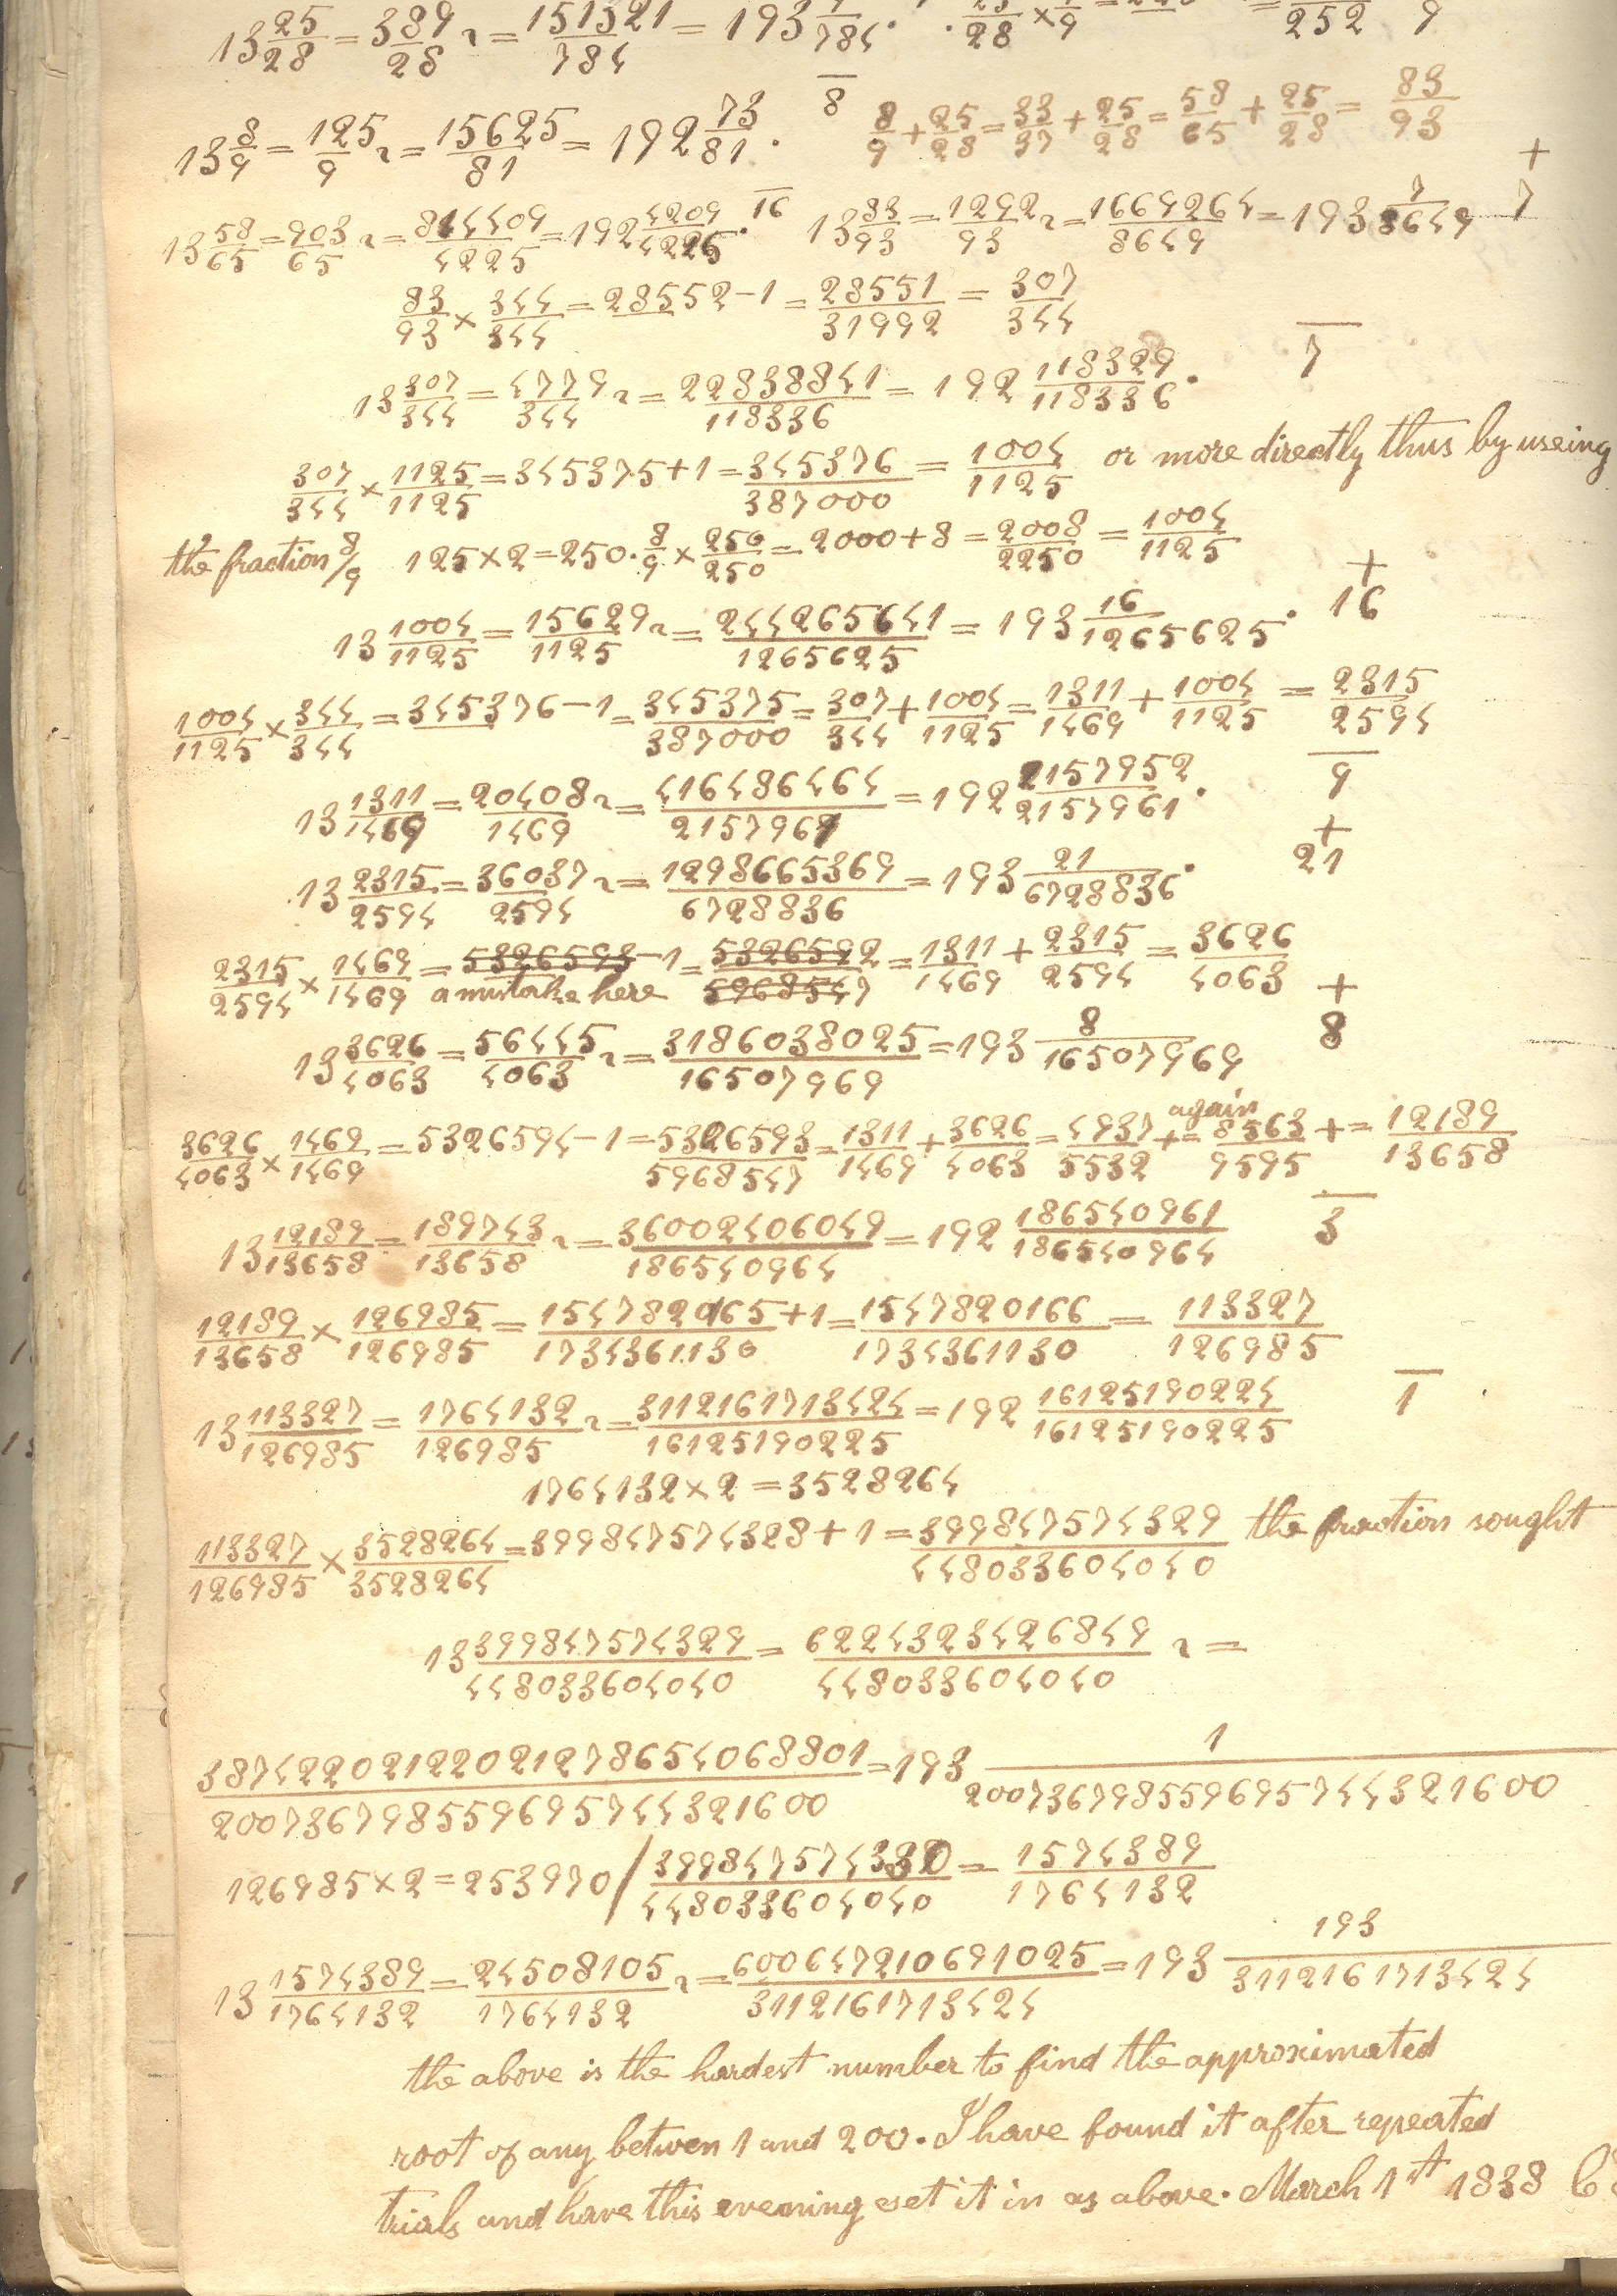 13 25/28 = 389/28 ~ = 151321/784 = 193 9/784 . 25/28 × 9 = 252 9
13 8/9 = 125/9 ~ = 15625/81 = 192 73/81 . — 8 8/9 + 25/28 = 33/37 + 25/28 = 58/65 + 25/28 = 83/93
13 58/65 = 903/65 ~ = 815409/4225 = 192 4209/4225 . — 16 13 83/93 = 1292/93 ~ = 1669264/8649 = 193 7/8649 + 7
83/93 × 344/344 = 28552 - 1 = 28551/31992 = 307/344
13 307/344 = 4779/344 ~ = 22838841/118336 = 192 118329/118336 . — 7
307/344 × 1125/1125 = 345375 + 1 = 345376/387000 = 1004/1125 or more directly thus by useing
the fraction 8/9 125 × 2 = 250 . 8/9 × 250/250 = 2000 + 8 = 2008/2250 = 1004/1125
13 1004/1125 = 15629/1125 ~ = 244265641/1265625 = 193 16/1265625 . + 16
1004/1125 × 344/344 = 345376 - 1 = 345375/387000 = 307/344 + 1004/1125 = 1311/1469 + 1004/1125 = 2315/2594
13 1311/1469 = 20408/1469 ~ = 416486464/2157961 = 192 2157952/2157961 . — 9
13 2315/2594 = 36037/2594 ~ = 1298665369/6728836 = 193 21/6728836 . + 21
2315/2594 × 1469/1469 = 5326593 - 1 = 5326592/5968547 = 1311/1469 + 2315/2594 = 3626/4063
a mistake here
13 3626/4063 = 56445/4063 ~ = 3186038025/16507969 = 193 8/16507969 + 8
3626/4063 × 1469/1469 = 5326594 - 1 = 5326593/5968547 = 1311/1469 + 3626/4063 = 4937/5532 + again = 8563/9595 + = 12189/13658
13 12189/13658 = 189743/13658 ~ = 36002406049/186540964 = 192 186540961/186540964 — 3
12189/13658 × 126985/126985 = 1547820165/1734361130 + 1 = 1547820166/1734361130 = 113327/126985
13 113327/126985 = 1764132/126985 ~ = 3112161713424/16125190225 = 192 16125190224/16125190225 — 1
1764132 × 2 = 3528264
113327/126985 × 3528264/3528264 = 399847574328 + 1 = 399847574329/448033604040 the fraction sought
13 399847574329/448033604040 = 6224323426849/448033604040 ~ =
38742202122021278654068801/200736798559695744321600 = 193 1/200736798559695744321600
126985 × 2 = 253970 / 399847574330/448033604040 = 1574389/1764132
13 1574389/1764132 = 24508105/1764132 ~ = 600647210691025/3112161713424 = 193 193/3112161713424
the above is the hardest number to find the approximated
root of any betwen 1 and 200 . I have found it after repeated
trials and have this evening eset it in as above . March 1st 1838